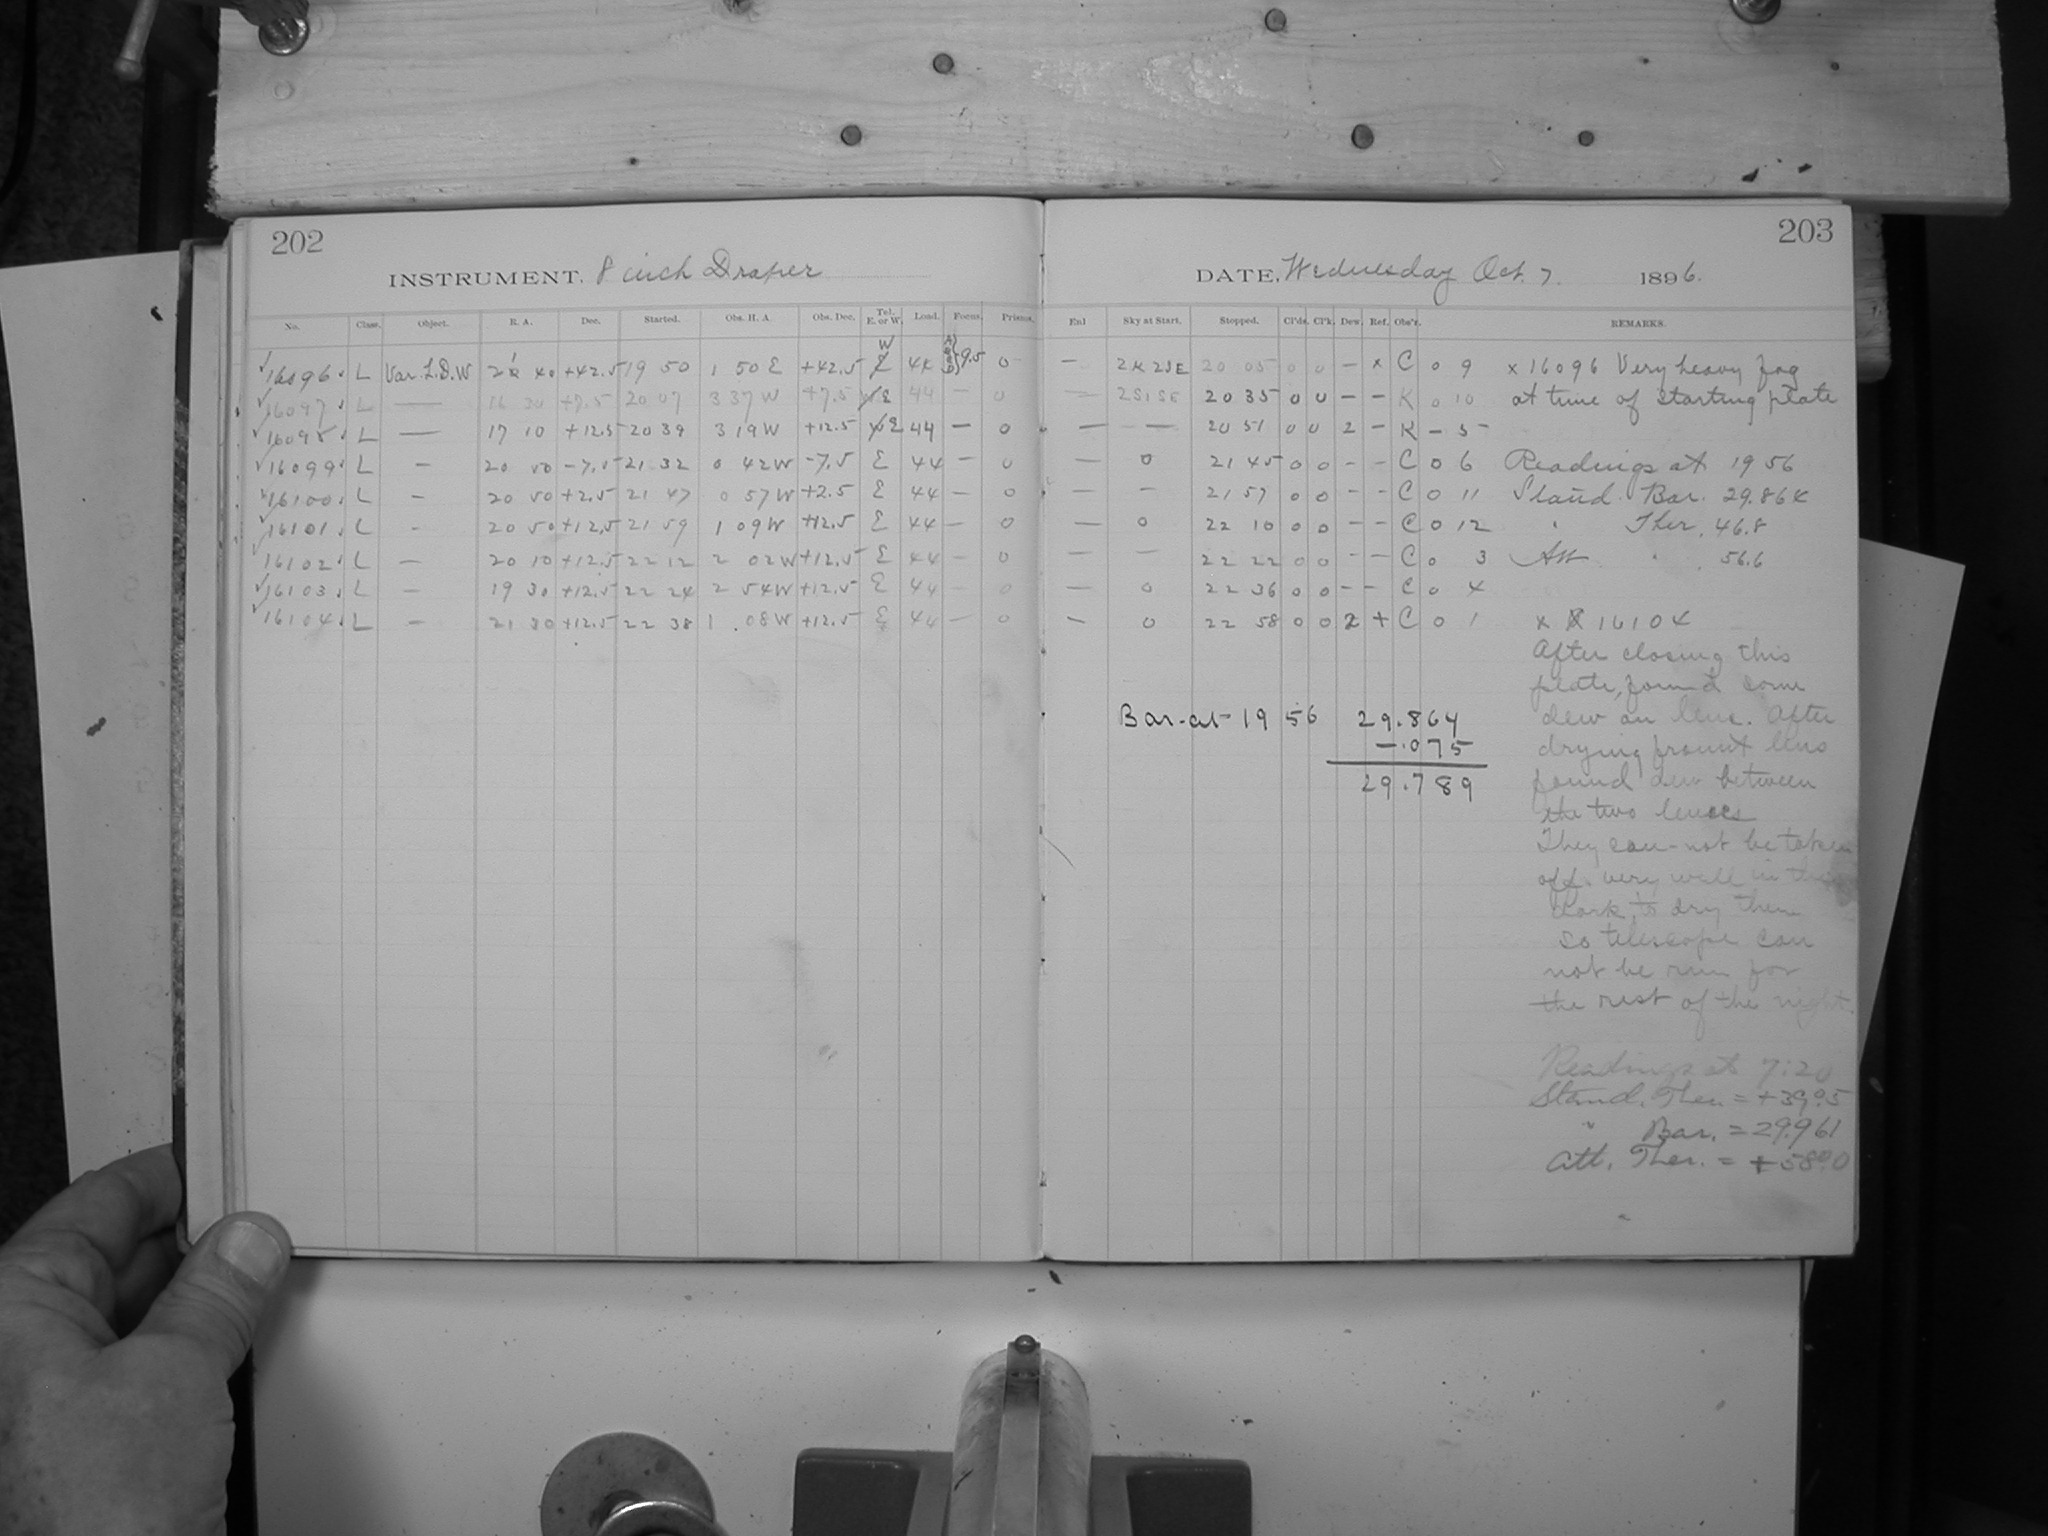 202
203
INSTRUMENT. 8 inch Draper
DATE, Wednesday Oct. 7. 1896.
No. Class. Object. R. A. Dec. Started. Obs. H. A. Obs. Dec. Tel. E. or W. Load. Focus. Prisms. Enl Sky at Start. Stopped. Cl'ds. Cl'k. Dew. Ref. Obs'r. REMARKS.
16096. L Var. L.D.W 21 40 +42.5 19 50 1 50 E +42.5 W 44 9.5 0 — 2K 2SE 20 05 0 0 — x C 0 9 x 16096 Very heavy fog
16097. L — 16 30 +7.5 20 07 3 37 W +7.5 E 44 — 0 — 2S1SE 20 35 0 0 — — K 0 10 at time of starting plate
16098. L — 17 10 +12.5 20 39 3 19 W +12.5 E 44 — 0 — — 20 51 0 0 2 — K — 5
16099. L — 20 50 -7.5 21 32 0 42 W -7.5 E 44 — 0 — 0 21 45 0 0 — — C 0 6 Readings at 19 56
16100. L — 20 50 +2.5 21 47 0 57 W +2.5 E 44 — 0 — — 21 57 0 0 — — C 0 11 Stand. Bar. 29.864
16101. L - 20 50 +12.5 21 59 1 09 W +12.5 E 44 — 0 — 0 22 10 0 0 — — C 0 12 " Ther. 46.8
16102. L — 20 10 +12.5 22 12 2 02 W +12.5 E 44 — 0 — — 22 22 0 0 — — C 0 3 Att " 56.6
16103. L - 19 30 +12.5 22 24 2 54 W +12.5 E 44 — 0 — 0 22 36 0 0 — — C 0 4
16104. L — 21 30 +12.5 22 38 1 08 W +12.5 E 44 — 0 — 0 22 58 0 0 2 + C 0 1 x 16104
After closing this
plate, found some
Bar. at 19 56 29.864
dew on lens. After
-.075
drying front lens
29.789
found dew between
the two lenses
They can-not be taken
off very well in the
dark, to dry them
so telescope can
not be run for
the rest of the night.
Readings at 7:20
Stand. Ther. = +39.°5
" Bar. = 29.961
Att. Ther. = +58.°0